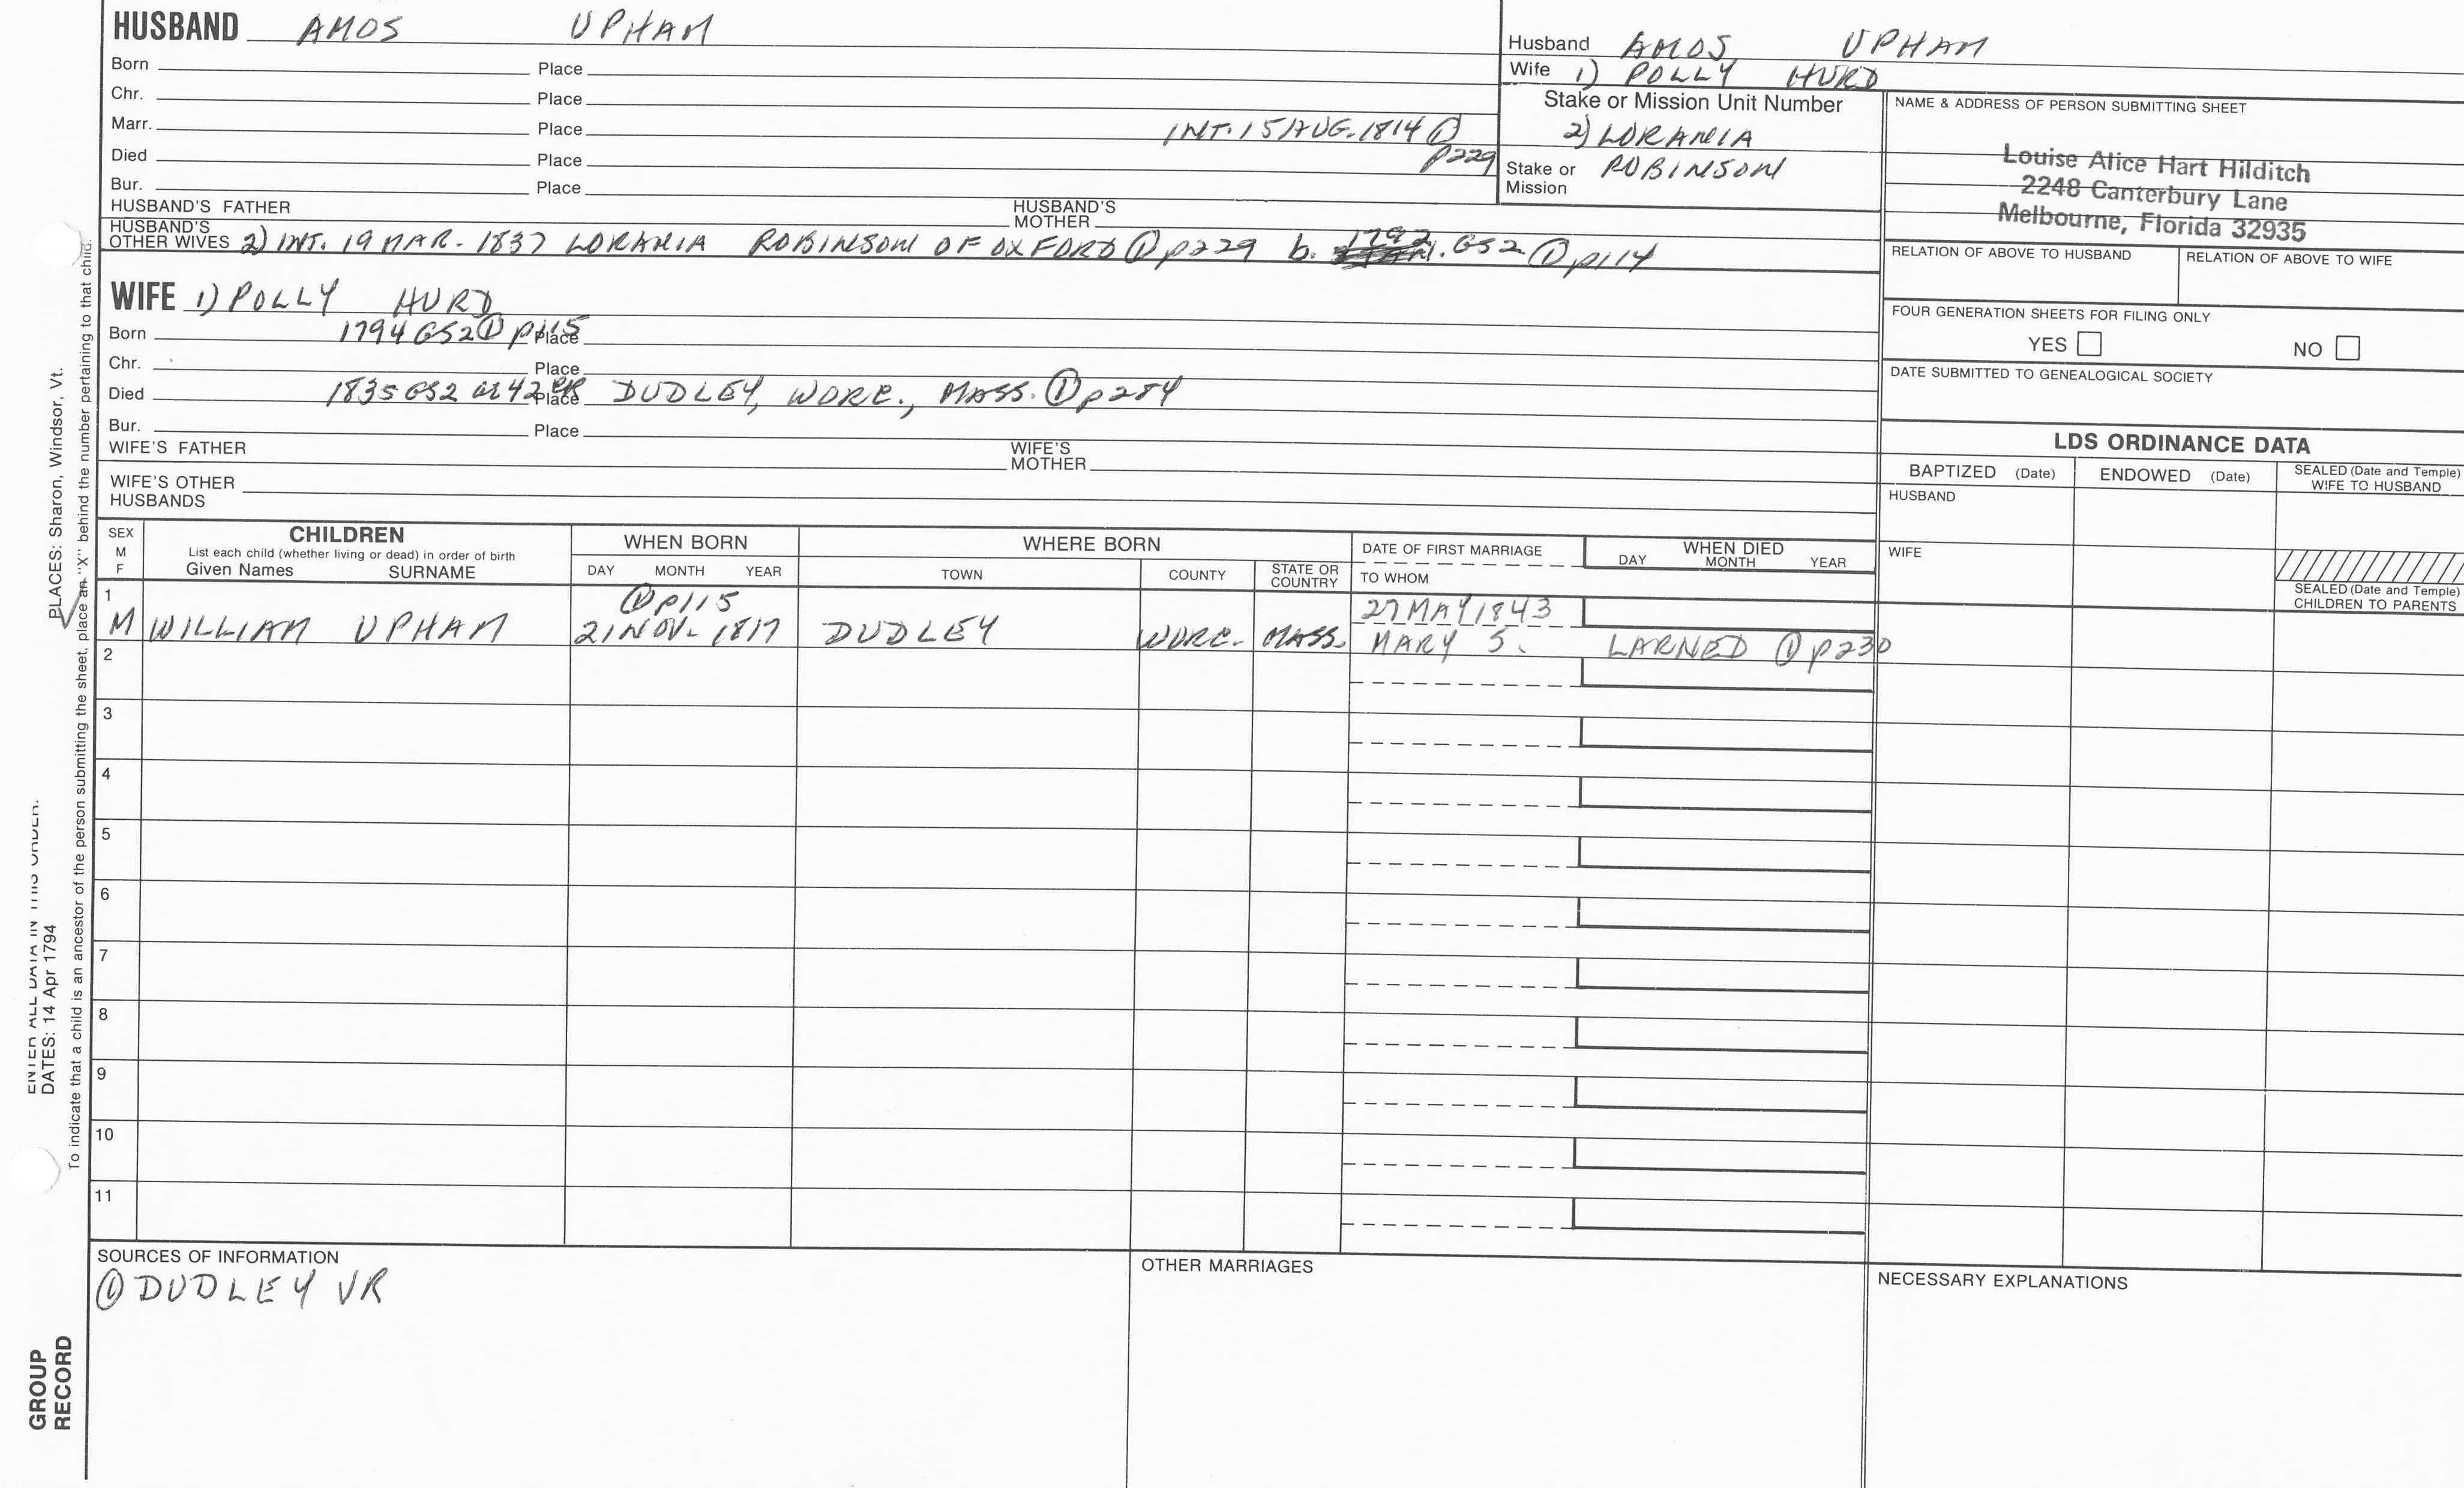 HUSBAND AMOS UPHAM
Born Place
Chr. Place
Marr. Place INT. 15 AUG. 1814 ①
p229
Died Place
Bur. Place
HUSBAND'S FATHER HUSBAND'S MOTHER
HUSBAND'S OTHER WIVES 2) INT. 19 MAR. 1837 LORANIA ROBINSON OF OXFORD ① p229 b. 1792. GS2 ① p114
Husband AMOS UPHAM
Wife 1) POLLY HURD
Stake or Mission Unit Number
2) LORANIA
Stake or Mission ROBINSON
NAME & ADDRESS OF PERSON SUBMITTING SHEET
Louise Alice Hart Hilditch
2248 Canterbury Lane
Melbourne, Florida 32935
RELATION OF ABOVE TO HUSBAND RELATION OF ABOVE TO WIFE
FOUR GENERATION SHEETS FOR FILING ONLY
YES NO
DATE SUBMITTED TO GENEALOGICAL SOCIETY
WIFE 1) POLLY HURD
Born 1794 GS2 ① p115 Place
Chr. Place
Died 1835 GS2 ae 42 Place DUDLEY, WORC., MASS. ① p284
Bur. Place
WIFE'S FATHER WIFE'S MOTHER
WIFE'S OTHER HUSBANDS
LDS ORDINANCE DATA
BAPTIZED (Date) ENDOWED (Date) SEALED (Date and Temple) WIFE TO HUSBAND
HUSBAND
WIFE
SEALED (Date and Temple)
CHILDREN TO PARENTS
SEX M F
CHILDREN
List each child (whether living or dead) in order of birth
Given Names SURNAME
WHEN BORN
DAY MONTH YEAR
WHERE BORN
TOWN COUNTY STATE OR COUNTRY
DATE OF FIRST MARRIAGE
TO WHOM
WHEN DIED
DAY MONTH YEAR
1 ① p115 27 MAY 1843
M WILLIAM UPHAM 21 NOV. 1817 DUDLEY WORC. MASS. MARY S. LARNED ① p230
2
3
4
5
6
7
8
9
10
11
SOURCES OF INFORMATION
① DUDLEY VR
OTHER MARRIAGES
NECESSARY EXPLANATIONS
PLACES: Sharon, Windsor, Vt.
To indicate that a child is an ancestor of the person submitting the sheet, place an "X" behind the number pertaining to that child.
ENTER ALL DATA IN THIS ORDER:
DATES: 14 Apr 1794
GROUP
RECORD